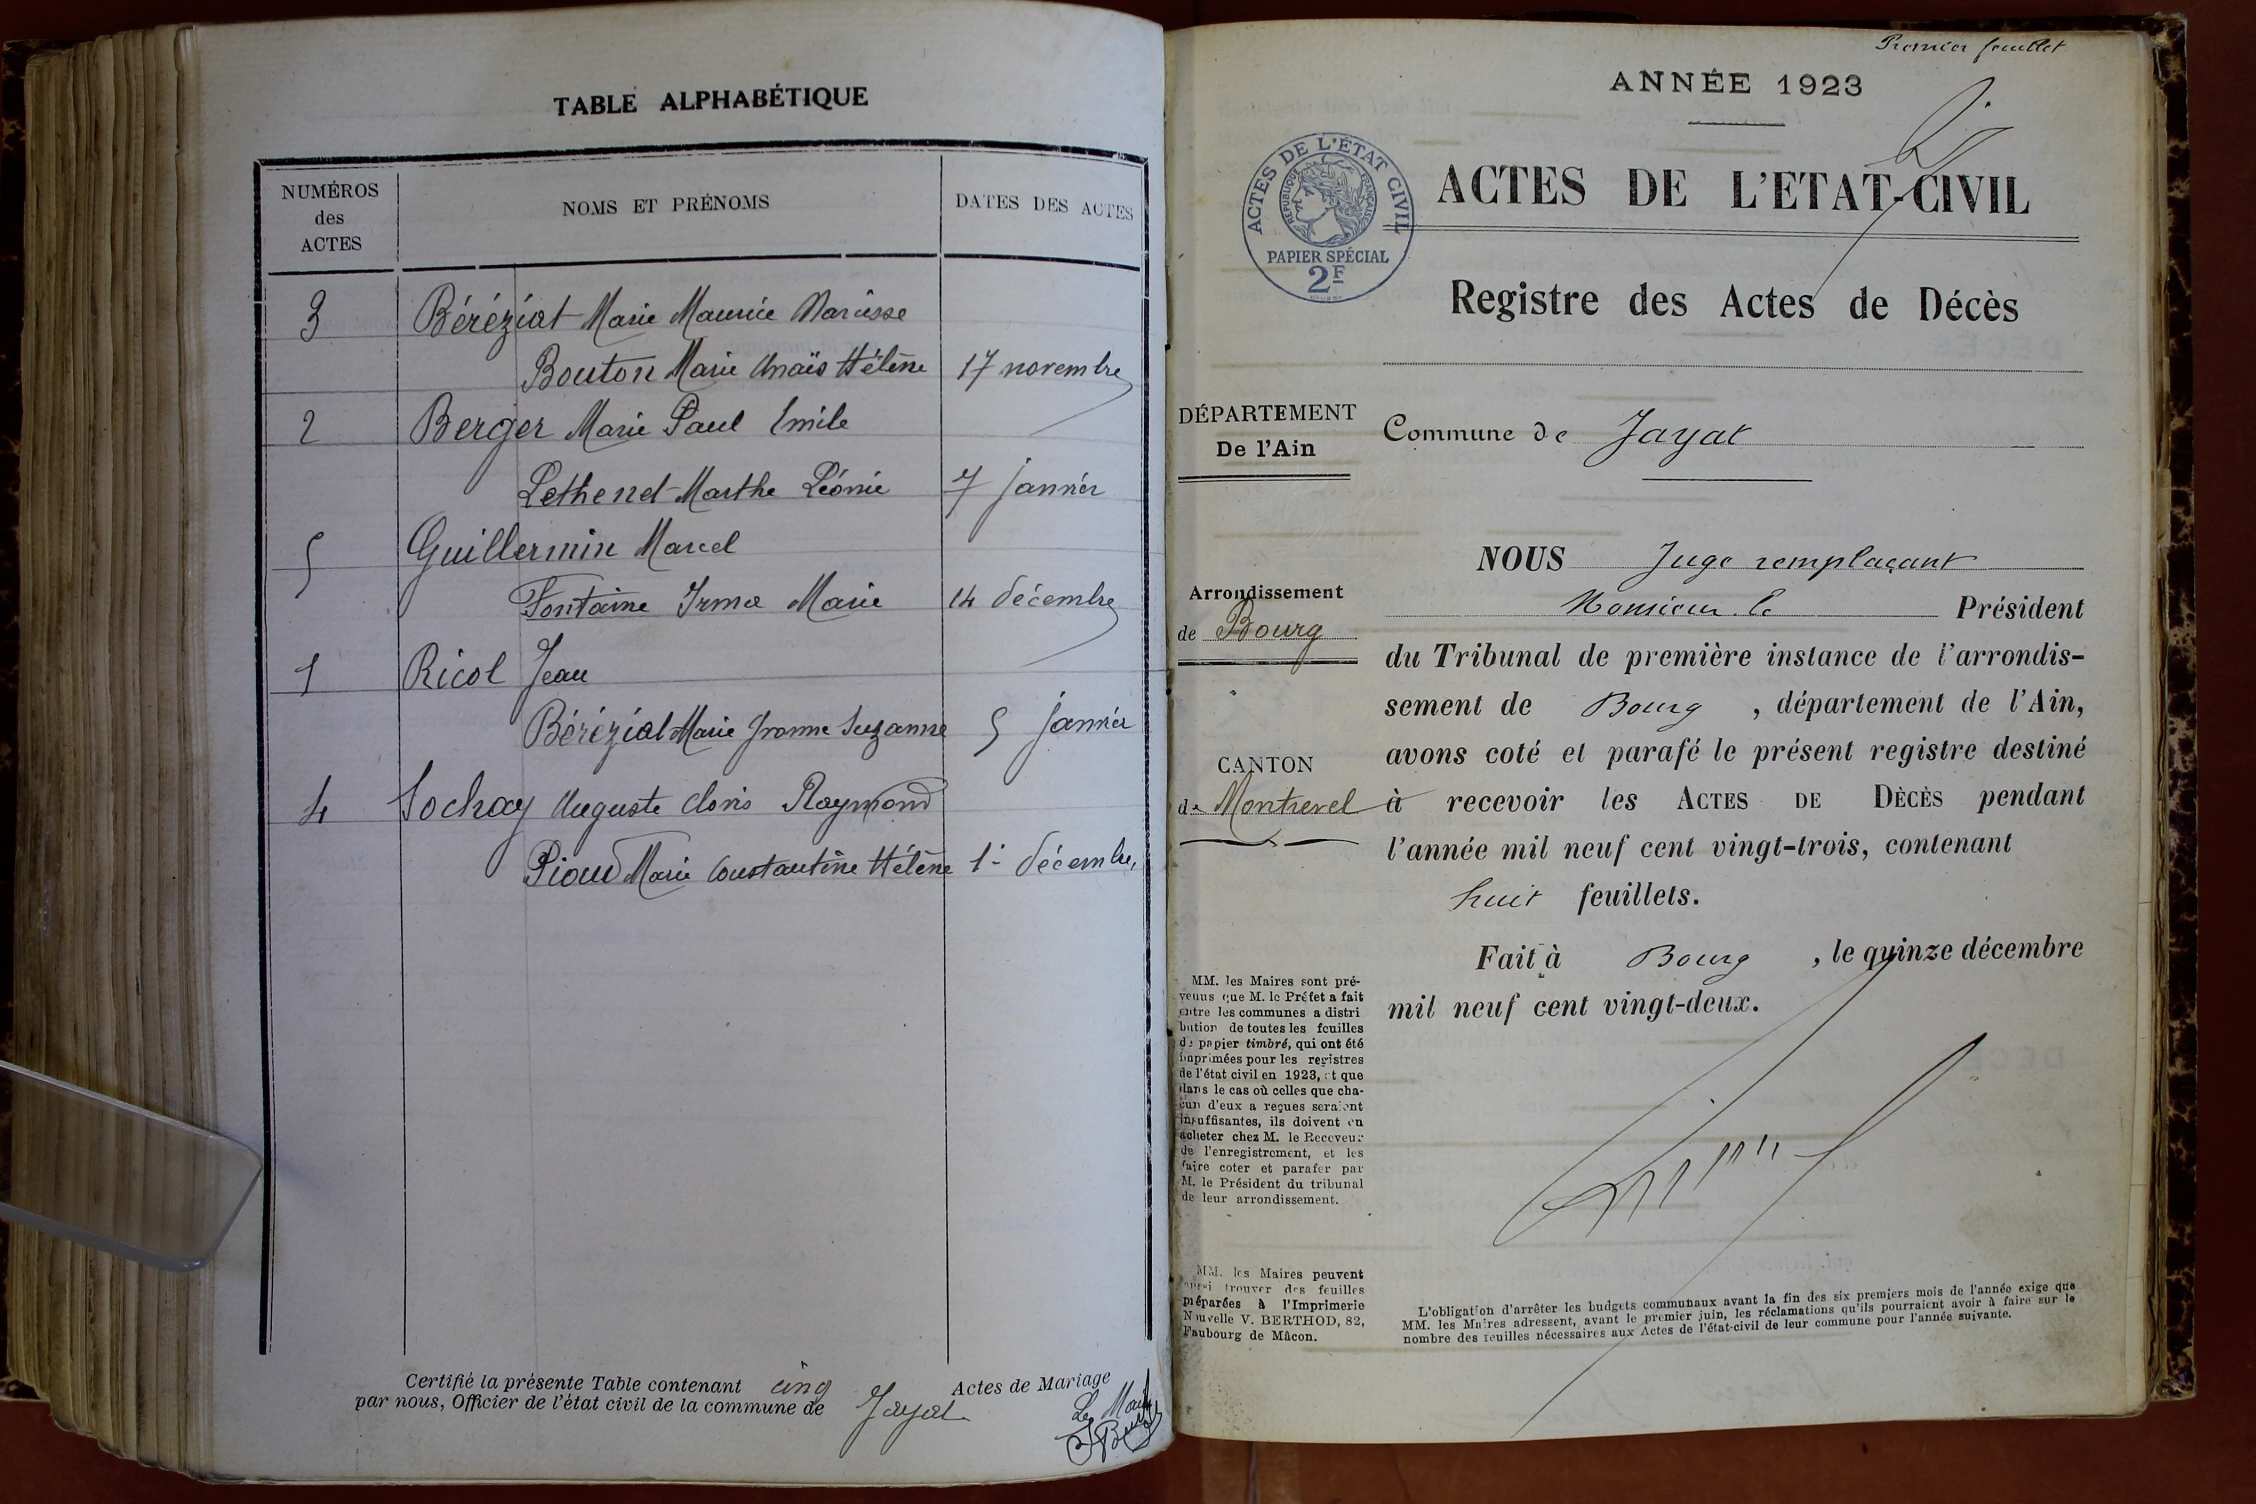 TABLE ALPHABÉTIQUE
NUMÉROS
des
ACTES
NOMS ET PRÉNOMS
DATES DES ACTES
3 Béréziat Marie Maurice Narcisse
Bouton Marie Anaïs Hélène 17 novembre
2 Berger Marie Paul Emile
Lethenet Marthe Léonie 7 janvier
5 Guillermin Marcel
Fontaine Irma Marie 14 décembre
1 Ricol Jean
Béréziat Marie Yvonne Suzanne 5 janvier
4 Sochay Auguste Clovis Raymond
Pioud Marie Constantine Hélène 1er décembre
Certifié la présente Table contenant cinq Actes de Mariage
par nous, Officier de l'état civil de la commune de Jayat
Le Maire
Premier feuillet
ANNÉE 1923
ACTES DE L'ÉTAT CIVIL
RÉPUBLIQUE FRANÇAISE
PAPIER SPÉCIAL
2F
ACTES DE L'ETAT-CIVIL
Registre des Actes de Décès
DÉPARTEMENT
De l'Ain
Commune de Jayat
Arrondissement
de Bourg
CANTON
de Montrevel
NOUS Juge remplaçant
Monsieur le Président
du Tribunal de première instance de l'arrondis-
sement de Bourg, département de l'Ain,
avons coté et parafé le présent registre destiné
à recevoir les ACTES DE DÉCÈS pendant
l'année mil neuf cent vingt-trois, contenant
huit feuillets.
Fait à Bourg, le quinze décembre
mil neuf cent vingt-deux.
MM. les Maires sont pré-
venus que M. le Préfet a fait
entre les communes a distri
bution de toutes les feuilles
de papier timbré, qui ont été
imprimées pour les registres
de l'état civil en 1923, et que
dans le cas où celles que cha-
cun d'eux a reçues seraient
insuffisantes, ils doivent en
acheter chez M. le Receveur
de l'enregistrement, et les
faire coter et parafer par
M. le Président du tribunal
de leur arrondissement.
MM. les Maires peuvent
aussi trouver des feuilles
préparées à l'Imprimerie
Nouvelle V. BERTHOD, 82,
Faubourg de Mâcon.
L'obligation d'arrêter les budgets communaux avant la fin des six premiers mois de l'année exige que
MM. les Maires adressent, avant le premier juin, les réclamations qu'ils pourraient avoir à faire sur le
nombre des feuilles nécessaires aux Actes de l'état-civil de leur commune pour l'année suivante.